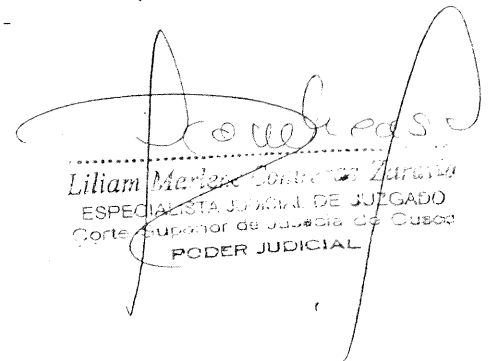 Liliam Marlene Contreras Zuravia
ESPECIALISTA JUDICIAL DE JUZGADO
Corte Superior de Justicia de Cusco
PODER JUDICIAL